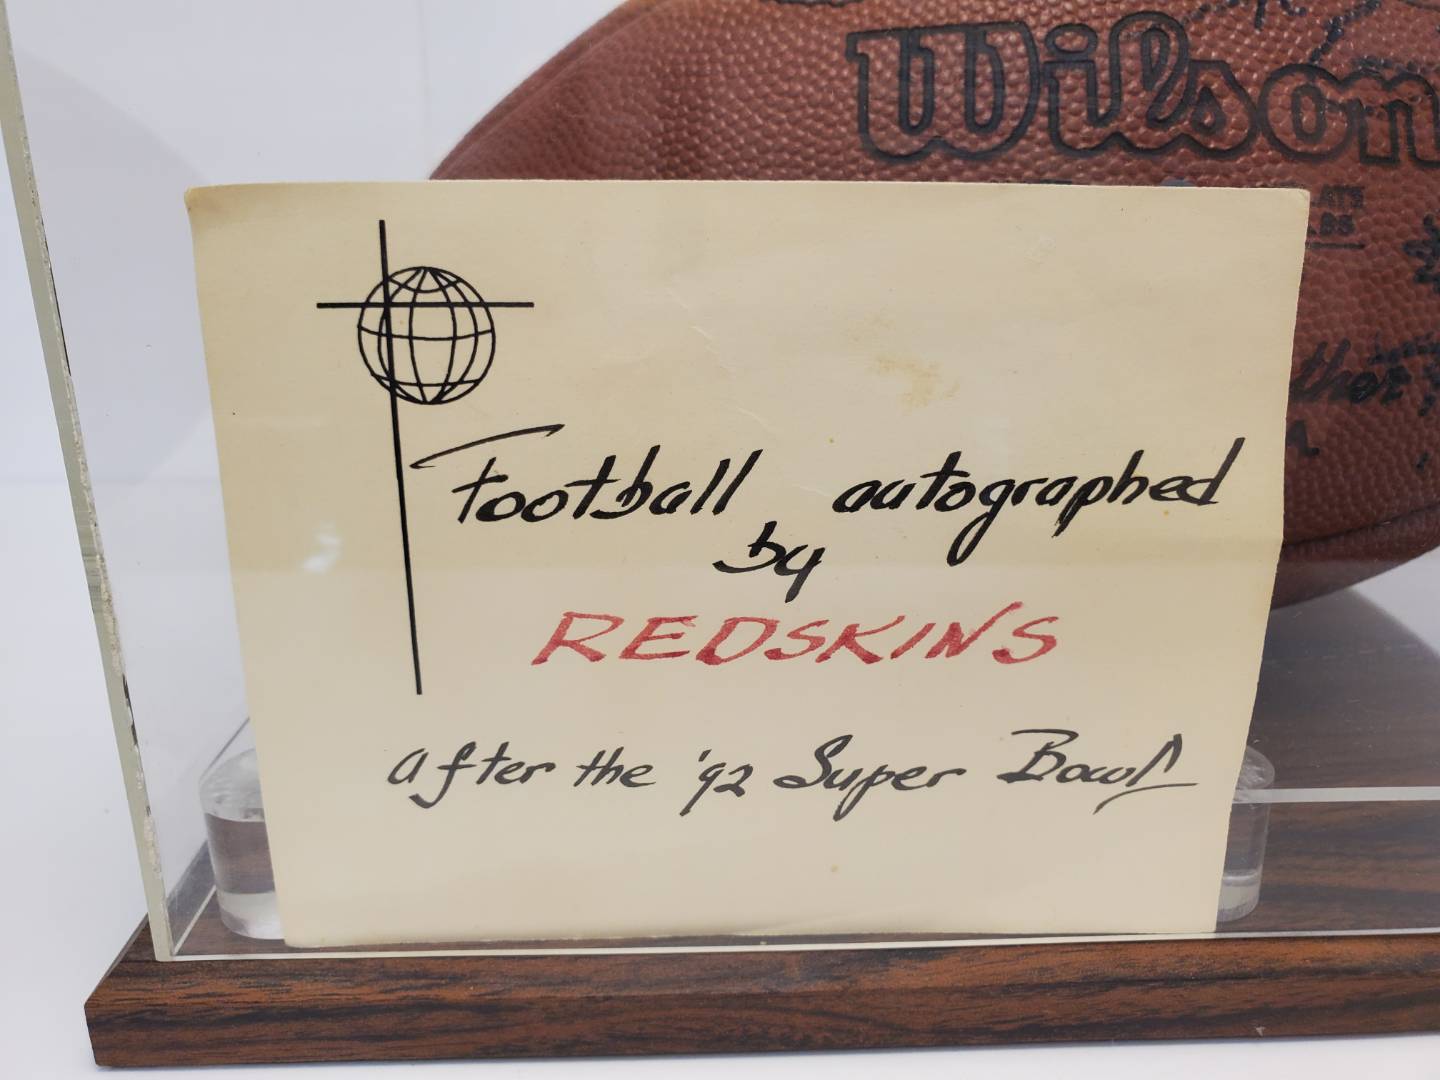 Wilson
Football autographed
by
REDSKINS
after the '92 Super Bowl